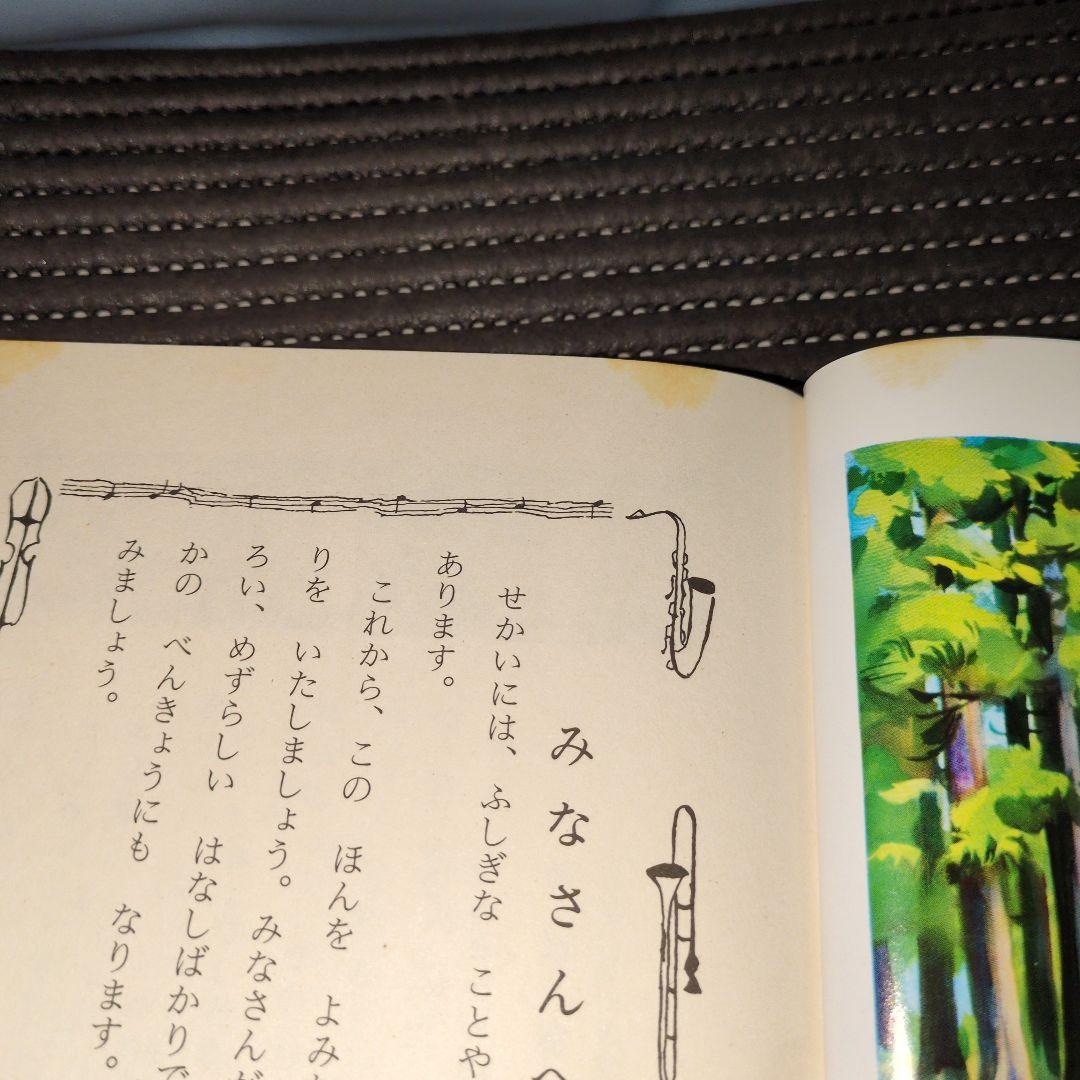 みなさんへ
せかいには、ふしぎな ことや
あります。
これから、この ほんを よみ
りを いたしましょう。 みなさんが
ろい、めずらしい はなしばかりで
かの べんきょうにも なります。
みましょう。